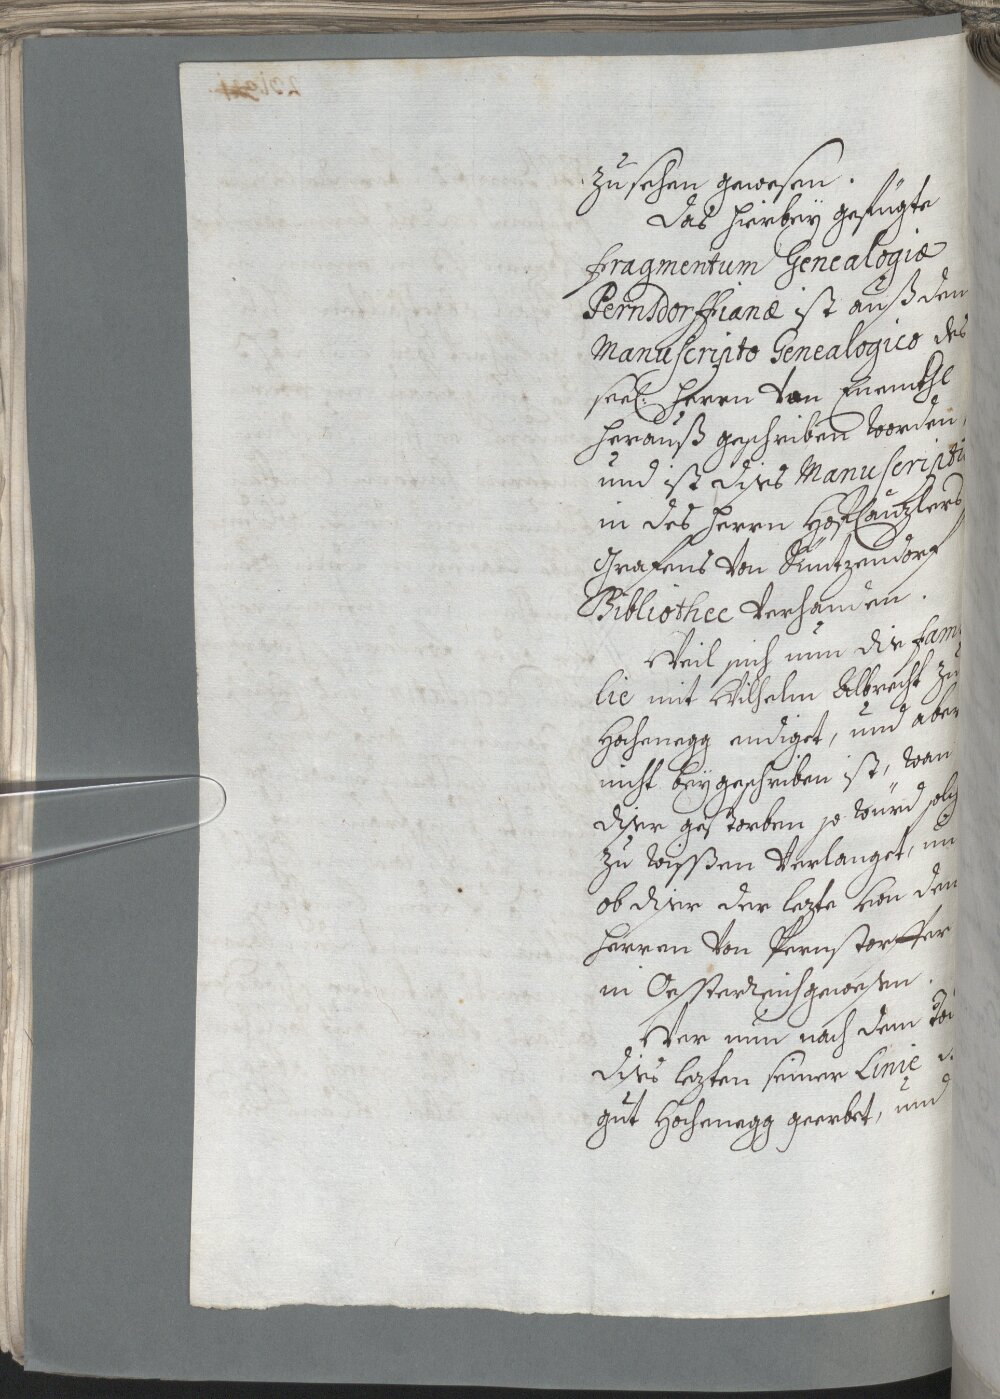 zu sehen gewesen.
Das hierbey gefügte
fragmentum Genealogiæ
Pernsdorffianæ ist auß dem
Manuscripto Genealogico des
seel: Herrn von Enenkhl
herauß geschriben worden,
und ist dises Manuscriptu
in des Herrn HofCantzlers
Grafens von Sintzendorf
Bibliothec verhanden.
Weil sich nun die fami
lie mit Wilhelm Albrecht zu
Hochenegg endiget, und aber
nicht beygeschriben ist, wan
diser gestorben so würd solch
zu wissen verlanget, un
ob diser der lezte von den
Herren von Pernstorffer
in Oesterreich gewesen.
Wer nun nach dem Tod
dises lezten seiner Linie d
gut Hochenegg geerbet, und